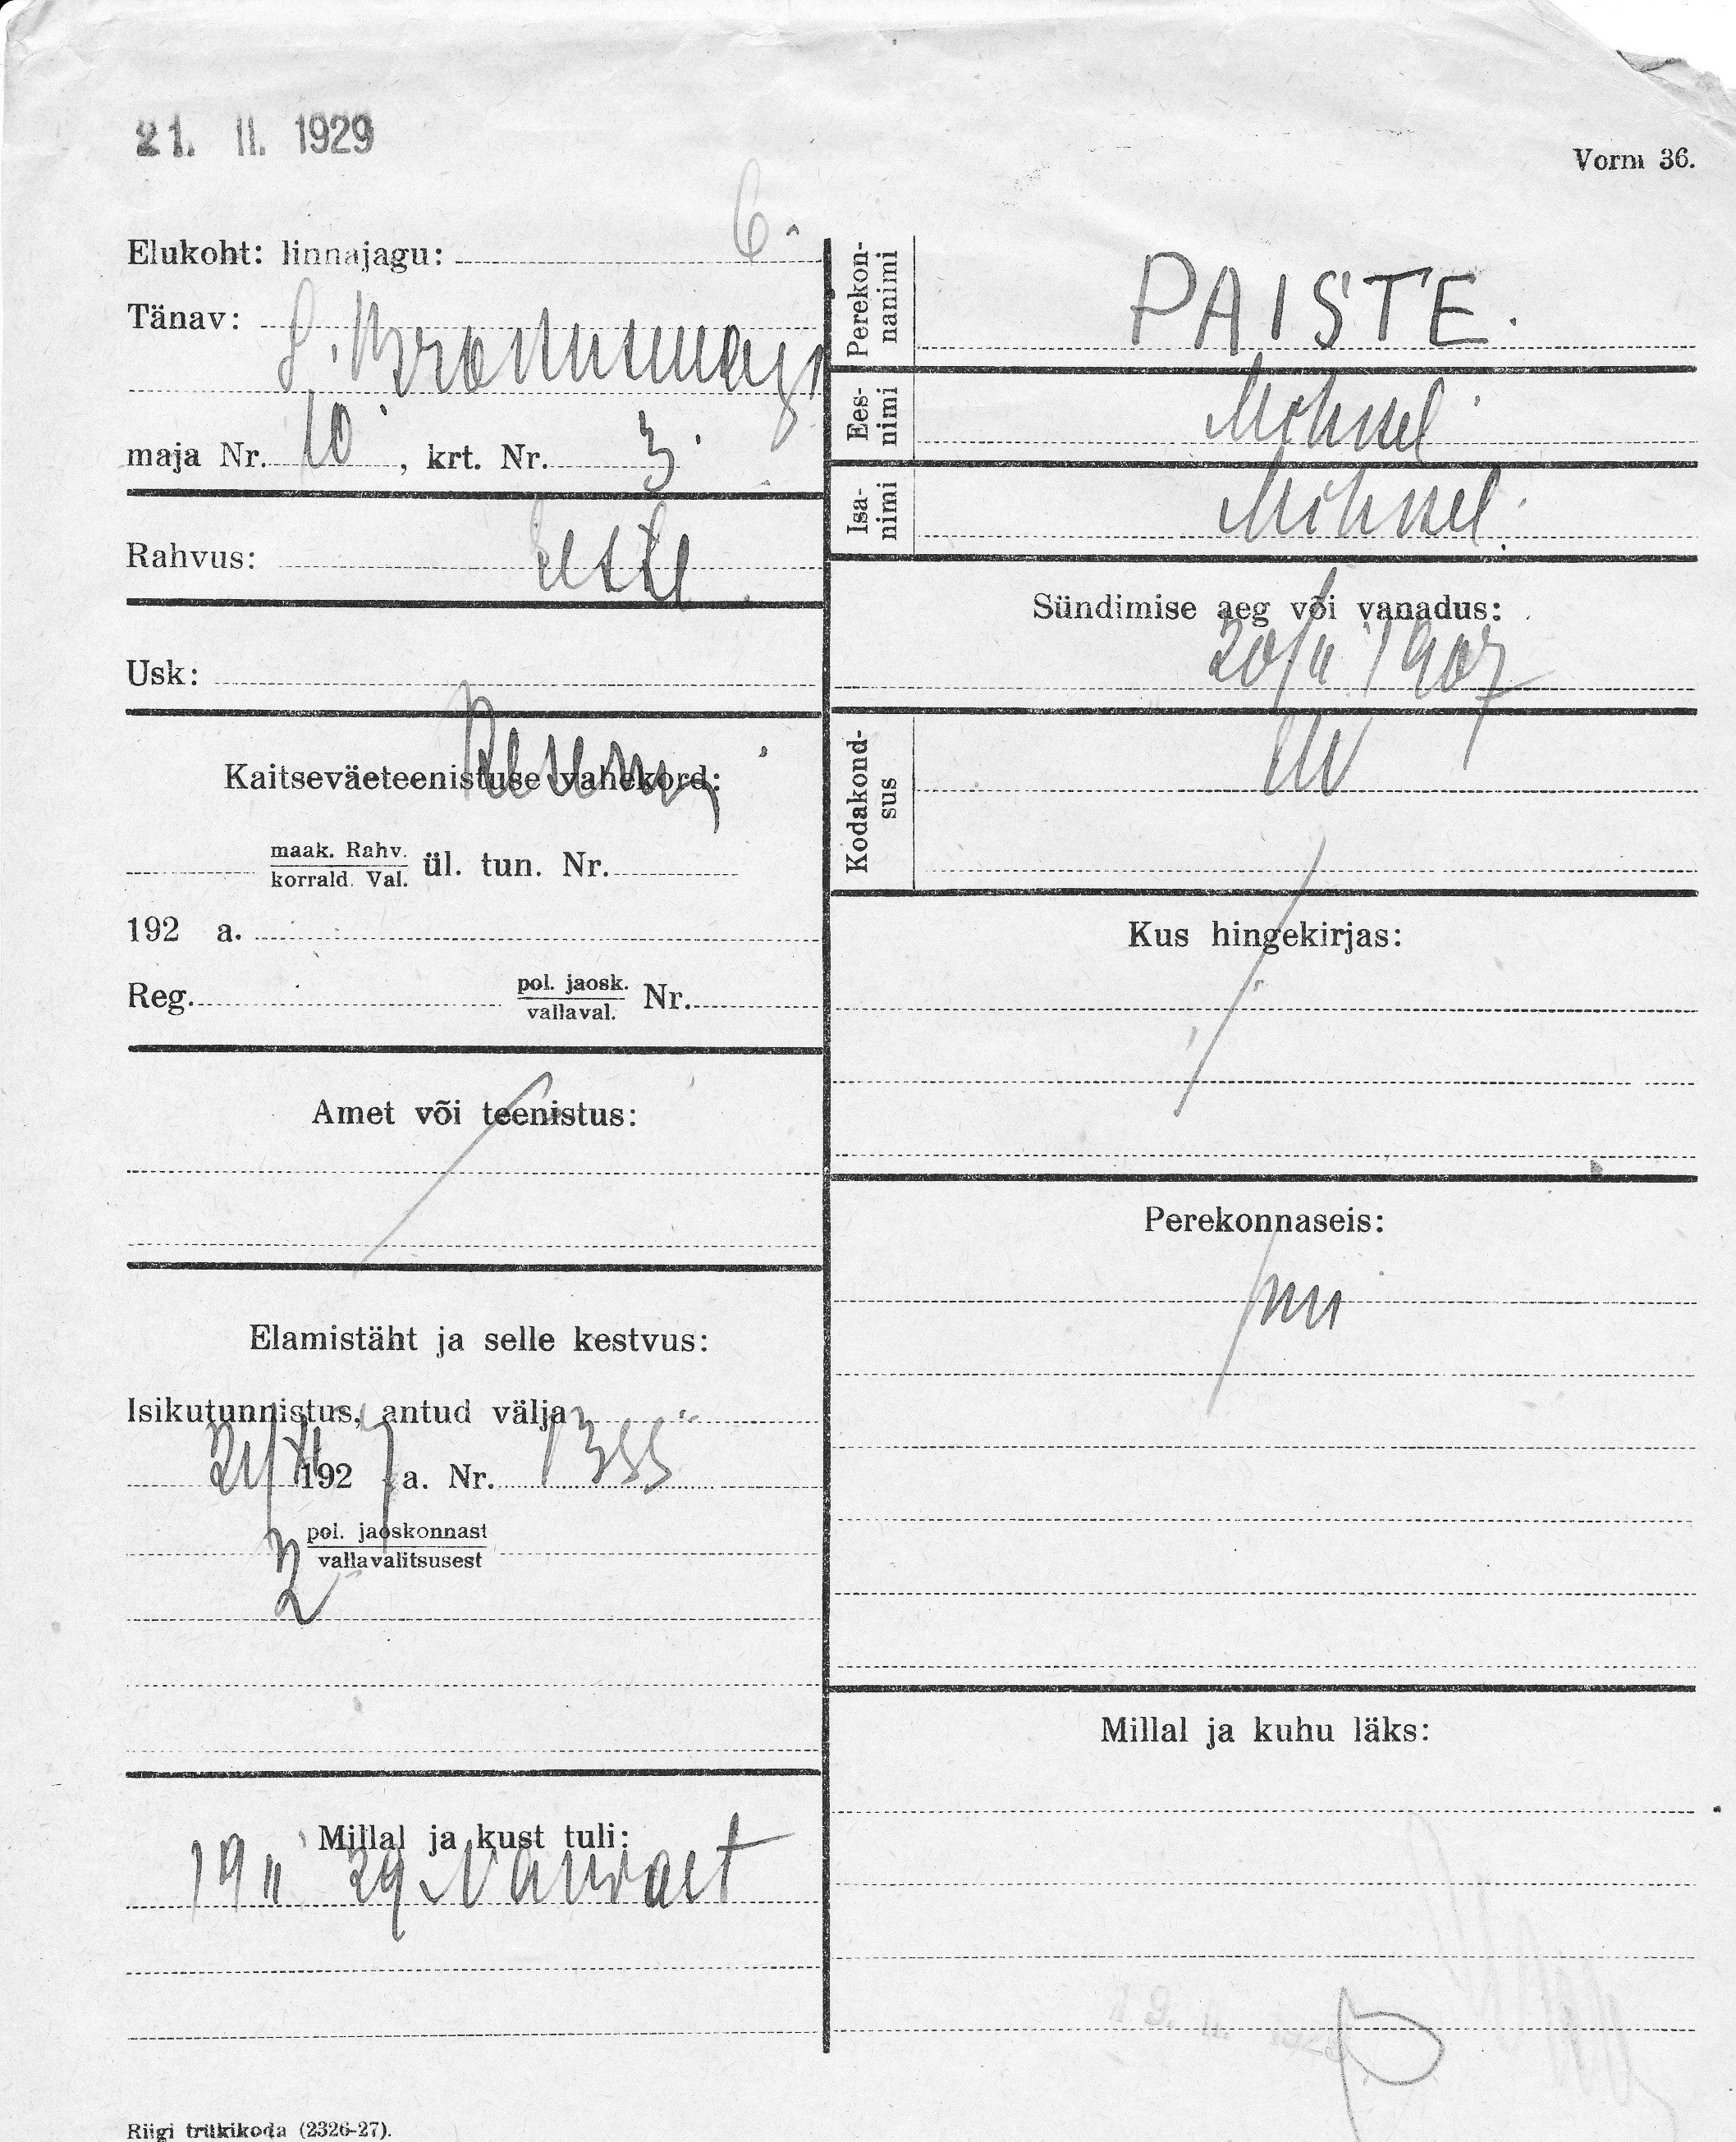 21. II. 1929
Vorm 36.
Elukoht: linnajagu: 6.
Tänav:
maja Nr. 10, krt. Nr. 3.
Rahvus: eesti
Usk:
Kaitseväeteenistuse vahekord:
maak. Rahv.
korrald. Val. ül. tun. Nr.
192 a.
Reg. pol. jaosk.
vallaval. Nr.
Amet või teenistus:
Elamistäht ja selle kestvus:
Isikutunnistus, antud välja
21/XI 192 7 a. Nr. 1355
2 pol. jaoskonnast
vallavalitsusest
Millal ja kust tuli:
19 II 29 Narvast
Riigi trükikoda (2326-27).
Perekon-
nanimi
PAISTE.
Ees-
nimi
Mihkel
Isa-
nimi
Mihkel.
Sündimise aeg või vanadus:
20/II 1907
Kodakond-
sus
EV
Kus hingekirjas:
Perekonnaseis:
Millal ja kuhu läks:
19. II.